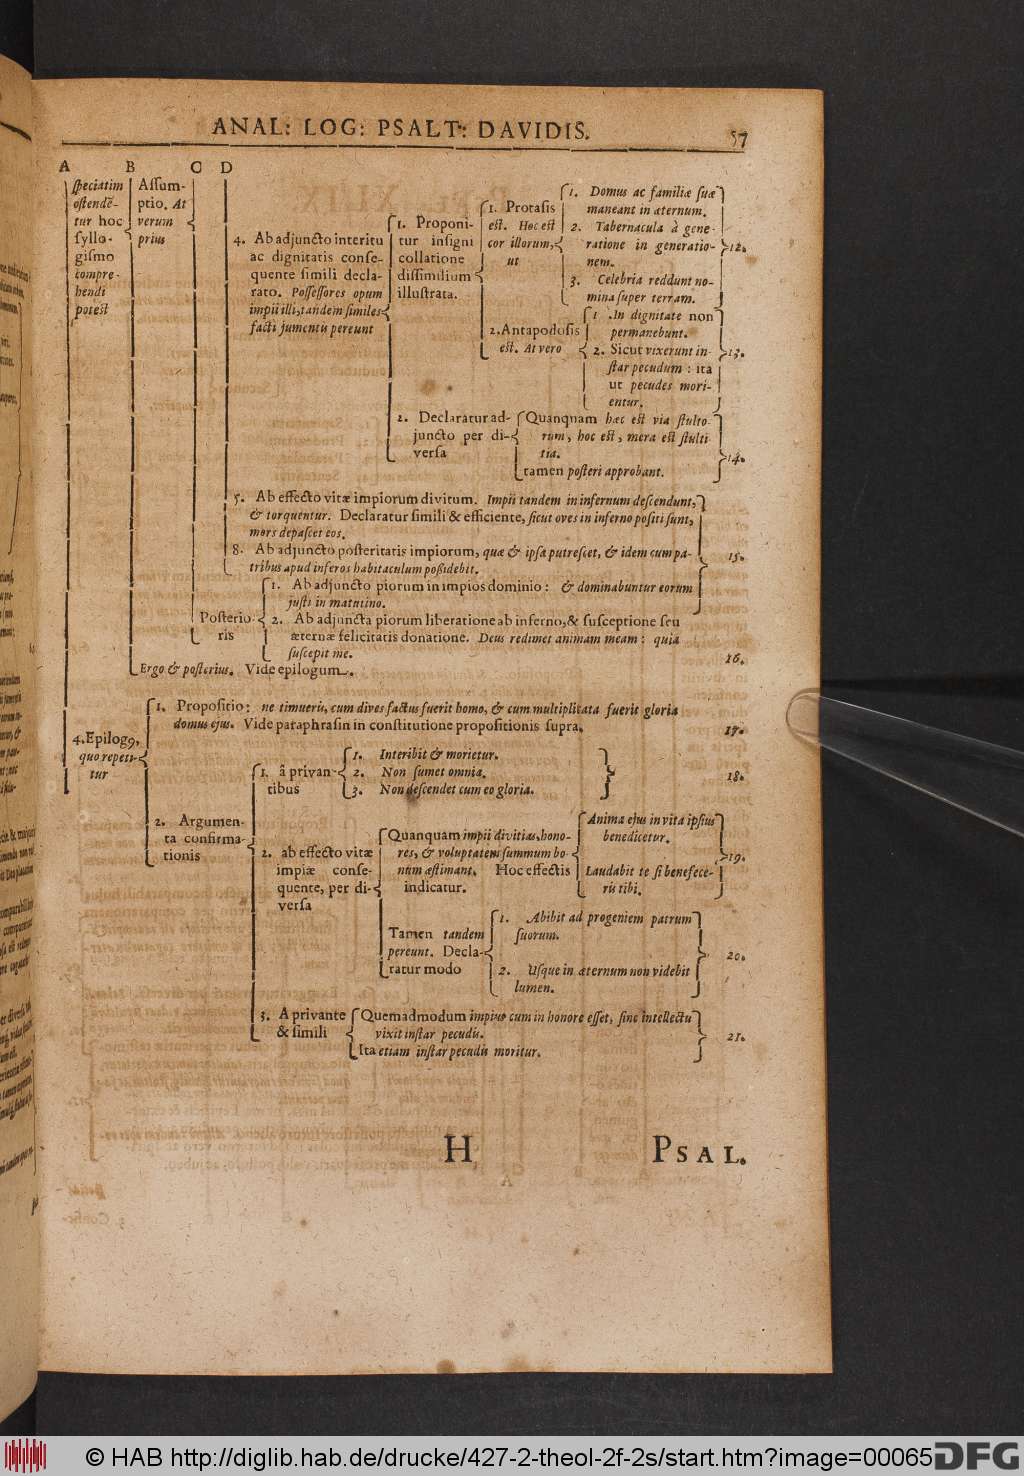 ANAL: LOG: PSALT: DAVIDIS.
57
A B C D
speciatim
ostendē-
tur hoc
syllo-
gismo
compre-
hendi
potest
Assum-
ptio. At
verum
prius
4. Ab adjuncto interitu
ac dignitatis conse-
quente simili decla-
rato. Possessores opum
impii illi, tandem similes
facti jumentis pereunt
1. Proponi-
tur insigni
collatione
dissimilium
illustrata.
1. Protasis
est. Hoc est
cor illorum,
ut
1. Domus ac familiæ suæ
maneant in æternum.
2. Tabernacula à gene-
ratione in generatio-
nem.
3. Celebria reddunt no-
mina super terram.
12.
2. Antapodosis
est. At vero
1. In dignitate non
permanebunt.
2. Sicut vixerunt in-
star pecudum : ita
ut pecudes mori-
entur.
13.
2. Declaratur ad-
juncto per di-
versa
Quanquam hæc est via stulto-
rum, hoc est, mera est stulti-
tia.
tamen posteri approbant.
14.
5. Ab effecto vitæ impiorum divitum. Impii tandem in infernum descendunt,
& torquentur. Declaratur simili & efficiente, sicut oves in inferno positi sunt,
mors depascet eos.
8. Ab adjuncto posteritatis impiorum, quæ & ipsa putrescet, & idem cum pa-
tribus apud inferos habitaculum poßidebit.
15.
Posterio-
ris
1. Ab adjuncto piorum in impios dominio : & dominabuntur eorum
justi in matutino.
2. Ab adjuncta piorum liberatione ab inferno, & susceptione seu
æternæ felicitatis donatione. Deus redimet animam meam : quia
suscepit me.
16.
Ergo & posterius. Vide epilogum.
4. Epilogꝰ,
quo repeti-
tur
1. Propositio: ne timueris, cum dives factus fuerit homo, & cum multiplicata fuerit gloria
domus ejus. Vide paraphrasin in constitutione propositionis supra.
17.
2. Argumen-
ta confirma-
tionis
1. â privan-
tibus
1. Interibit & morietur.
2. Non sumet omnia.
3. Non descendet cum eo gloria.
18.
2. ab effecto vitæ
impiæ conse-
quente, per di-
versa
Quanquam impii divitias, hono-
res, & voluptatem summum bo-
num æstimant. Hoc effectis
indicatur.
Anima ejus in vita ipsius
benedicetur.
Laudabit te si benefece-
ris tibi.
19.
Tamen tandem
pereunt. Decla-
ratur modo
1. Abibit ad progeniem patrum
suorum.
2. Usque in æternum non videbit
lumen.
20.
3. A privante
& simili
Quemadmodum impius cum in honore esset, sine intellectu
vixit instar pecudis.
Ita etiam instar pecudis moritur.
21.
H
PSAL.
© HAB http://diglib.hab.de/drucke/427-2-theol-2f-2s/start.htm?image=00065
DFG